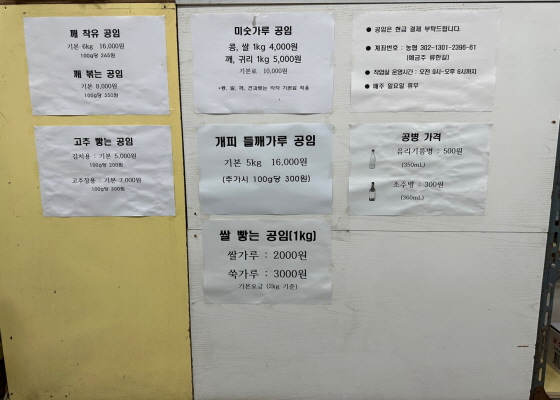 깨 착유 공임
기본 6kg 16,000원
100g당 265원
깨 볶는 공임
기본 8,000원
100g당 350원
고추 빻는 공임
김치용 : 기본 5,000원
100g당 200원
고추장용 : 기본 7,000원
100g당 300원
미숫가루 공임
콩, 쌀 1kg 4,000원
깨, 귀리 1kg 5,000원
기본료 10,000원
개피 들깨가루 공임
기본 5kg 16,000원
(추가시 100g당 300원)
쌀 빻는 공임(1kg)
쌀가루 : 2000원
쑥가루 : 3000원
기본요금 (2kg 기준)
● 공임은 현금 결제 부탁드립니다.
● 계좌번호 : 농협 302-1301-2396-61
(예금주 류한길)
● 작업실 운영시간 : 오전 9시~오후 6시까지
● 매주 일요일 휴무
공병 가격
유리기름병 : 500원
(350mL)
소주병 : 300원
(360mL)